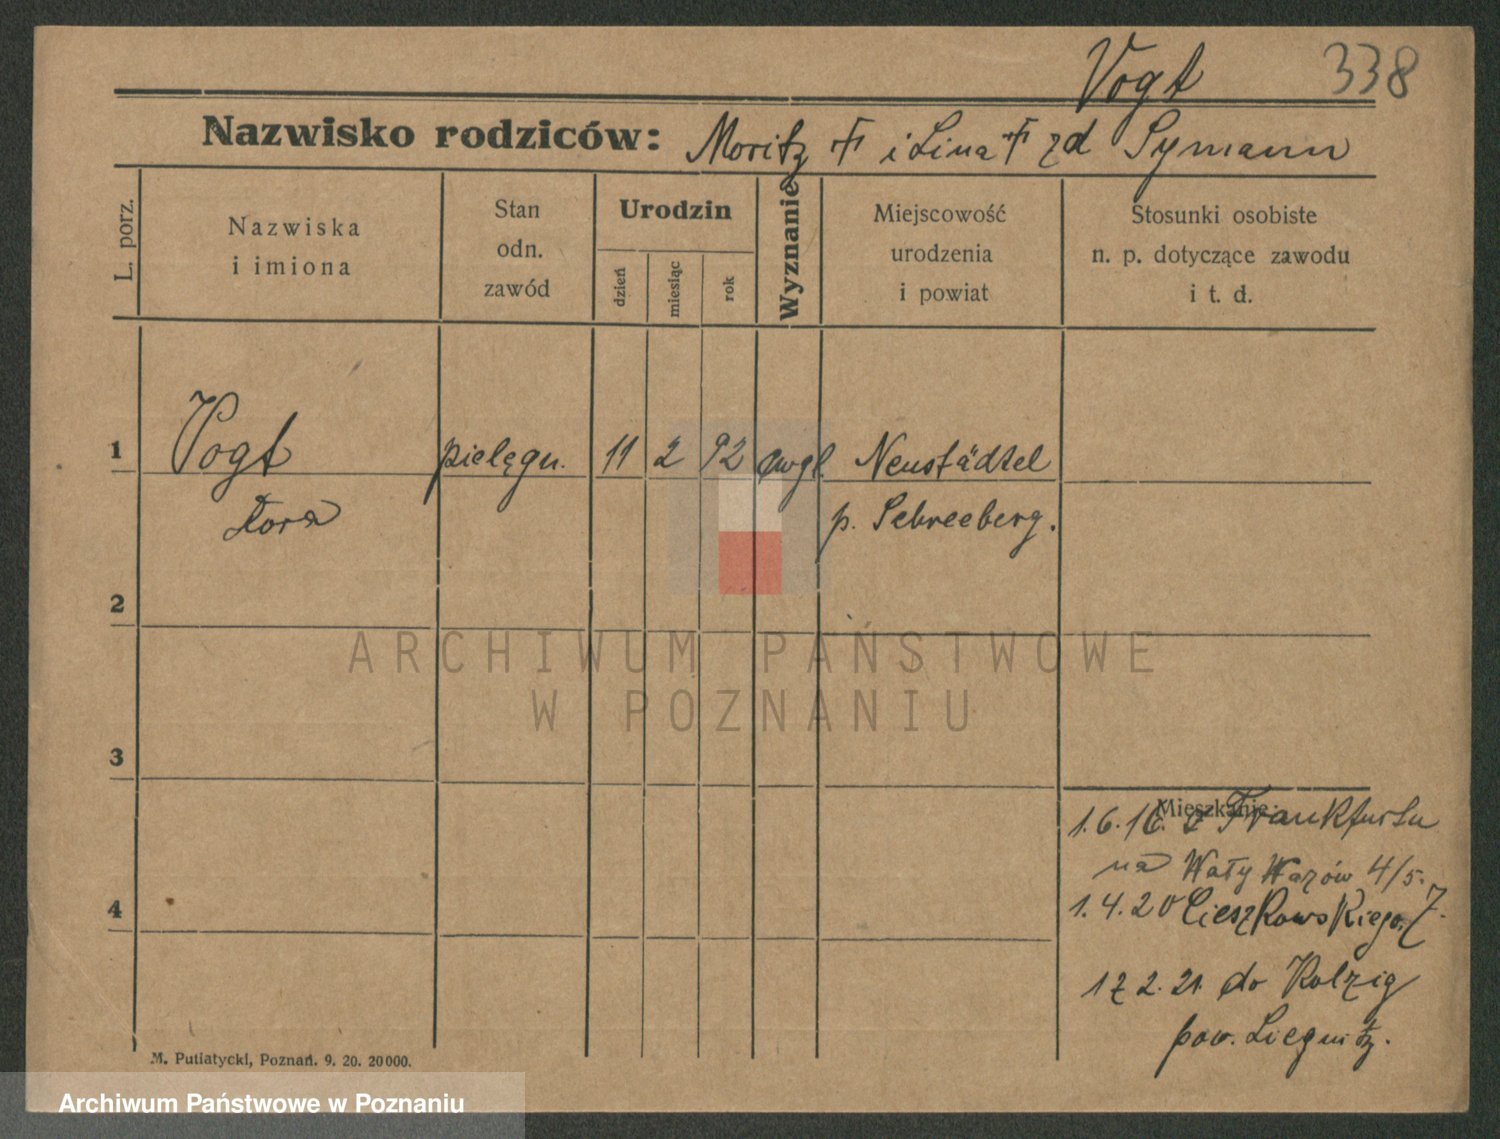 Vogt 338
Nazwisko rodziców: Moritz † i Lina † zd Symann
L. porz.
Nazwiska
i imiona
Stan
odn.
zawód
Urodzin
dzień
miesiąc
rok
Wyznanie
Miejscowość
urodzenia
i powiat
Stosunki osobiste
n. p. dotyczące zawodu
i t. d.
1 Vogt pielęgn. 11 2 92 ewgl. Neustädtel
Dora p. Schneeberg.
2
3
Mieszkanie:
1.6.16. z Frankfurtu
na Wały Wazów 4/5.
4
1.4.20 Cieszkowskiego 7.
17 2. 21. do Kolzig
pow. Liegnitz.
M. Putiatycki, Poznań. 9. 20. 20000.
ARCHIWUM PAŃSTWOWE
W POZNANIU
Archiwum Państwowe w Poznaniu